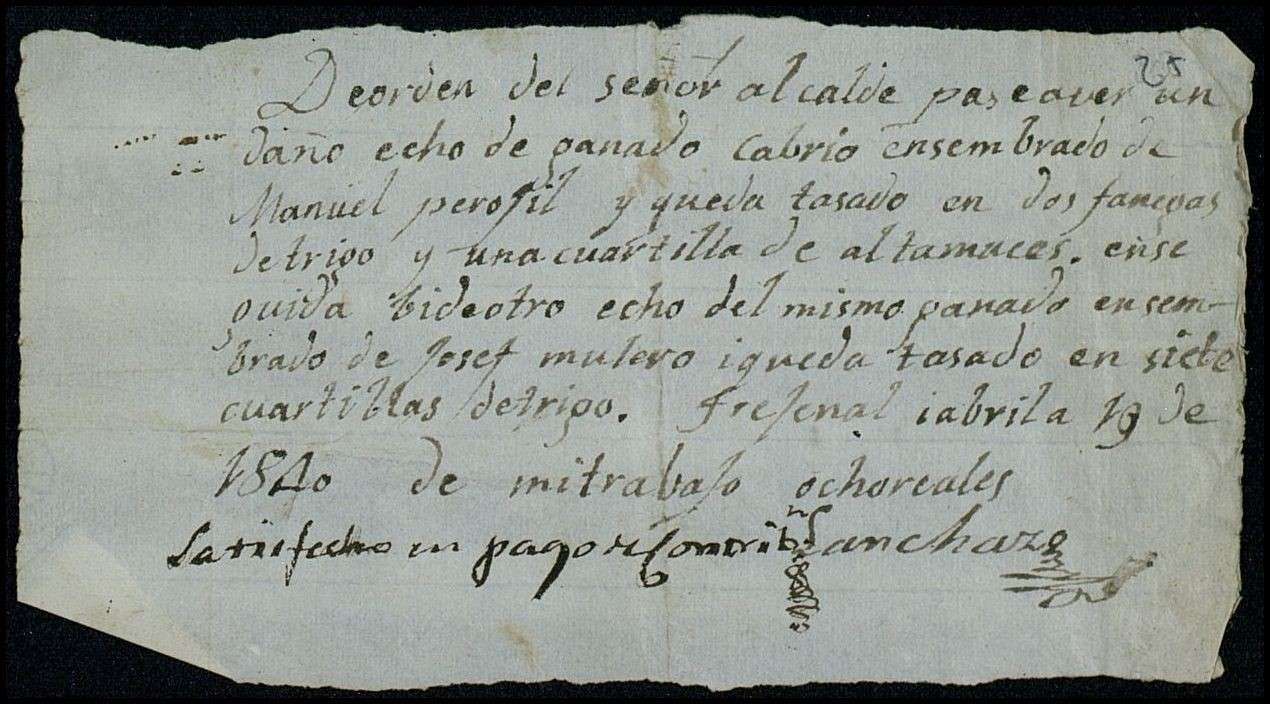 25
Deorden del señor alcalde paseaver un
daño echo de ganado Cabrio ensembrado de
Manuel perogil y queda tasado en dos fanegas
detrigo y unacuartilla de altamuces. ense
guida bideotro echo del mismo ganado en sem-
brado de Josef mulero iqueda tasado en siete
cuartillas detrigo. Fregenal iabrila 19 de
1840 de mitrabajo ochoreales
Satisfecho en pago de Contribn Sanchazo